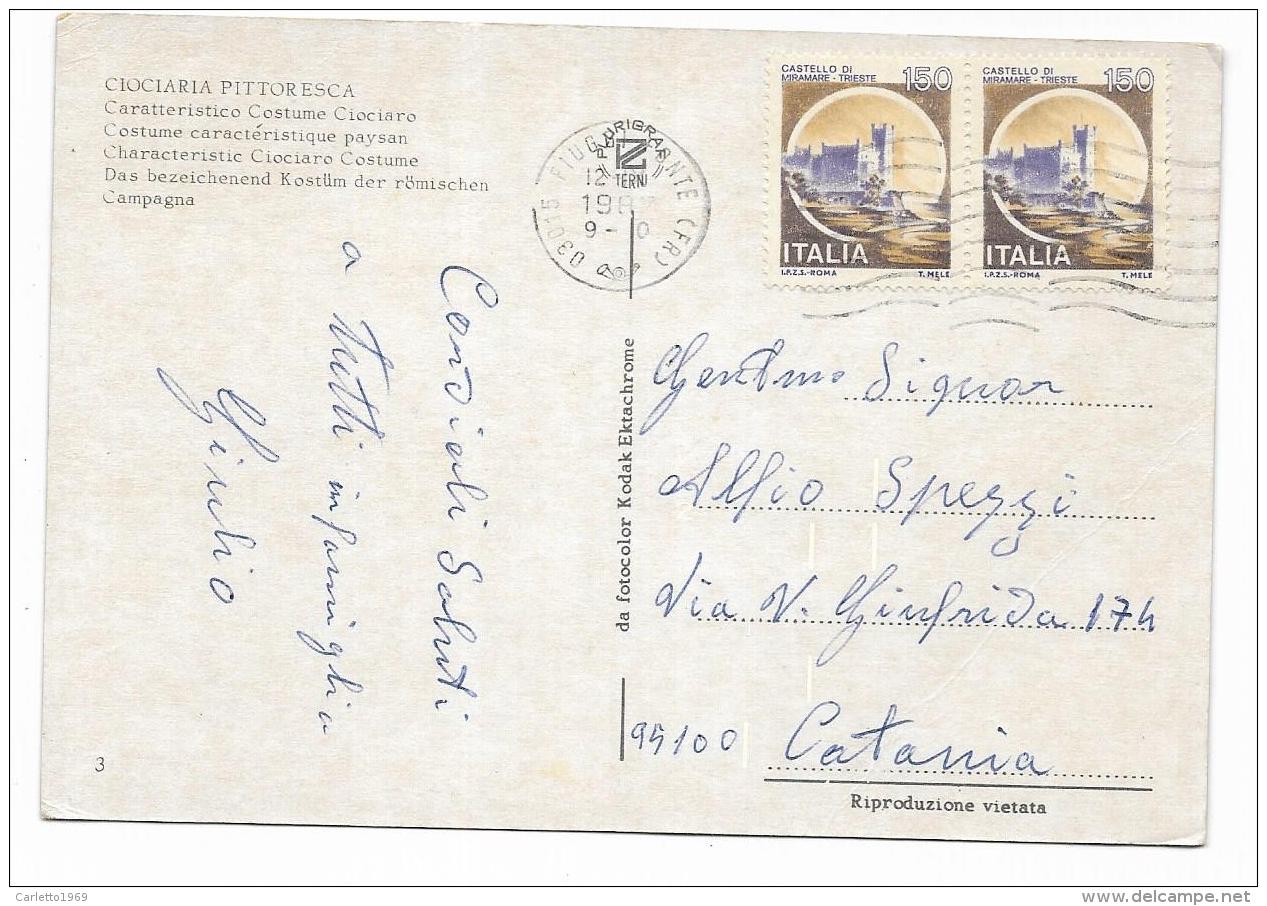 CIOCIARIA PITTORESCA
Caratteristico Costume Ciociaro
Costume caractéristique paysan
Characteristic Ciociaro Costume
Das bezeichenend Kostüm der römischen
Campagna
Cordiali Saluti
a Tutti in famiglia
Giulio
3
03015 FIUGGI FONTE (FR)
PLURIGRAF
TERNI
12
9-
CASTELLO DI
MIRAMARE - TRIESTE 150
ITALIA
I.P.Z.S.-ROMA T. MELE
CASTELLO DI
MIRAMARE - TRIESTE 150
ITALIA
I.P.Z.S.-ROMA T. MELE
da fotocolor Kodak Ektachrome
Gentmo Signor
Alfio Spezzi
Via V. Giufrida 174
95100 Catania
Riproduzione vietata
Carletto1969
delcampe.net